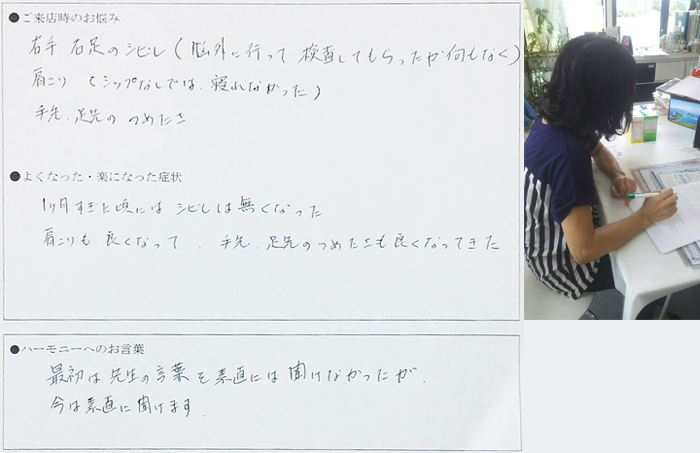 ●ご来店時のお悩み
右手 右足のシビレ(脳外に行って 検査してもらったが何もなく)
肩こり (シップなしでは、寝れなかった)
手先、足先の つめたさ
●よくなった・楽になった症状
1ヶ月すぎた頃には シビレは無くなった
肩こりも 良くなって、手先、足先のつめたさも良くなってきた
●ハーモニーへのお言葉
最初は 先生の言葉を素直には 聞けなかったが、
今は素直に聞けます.